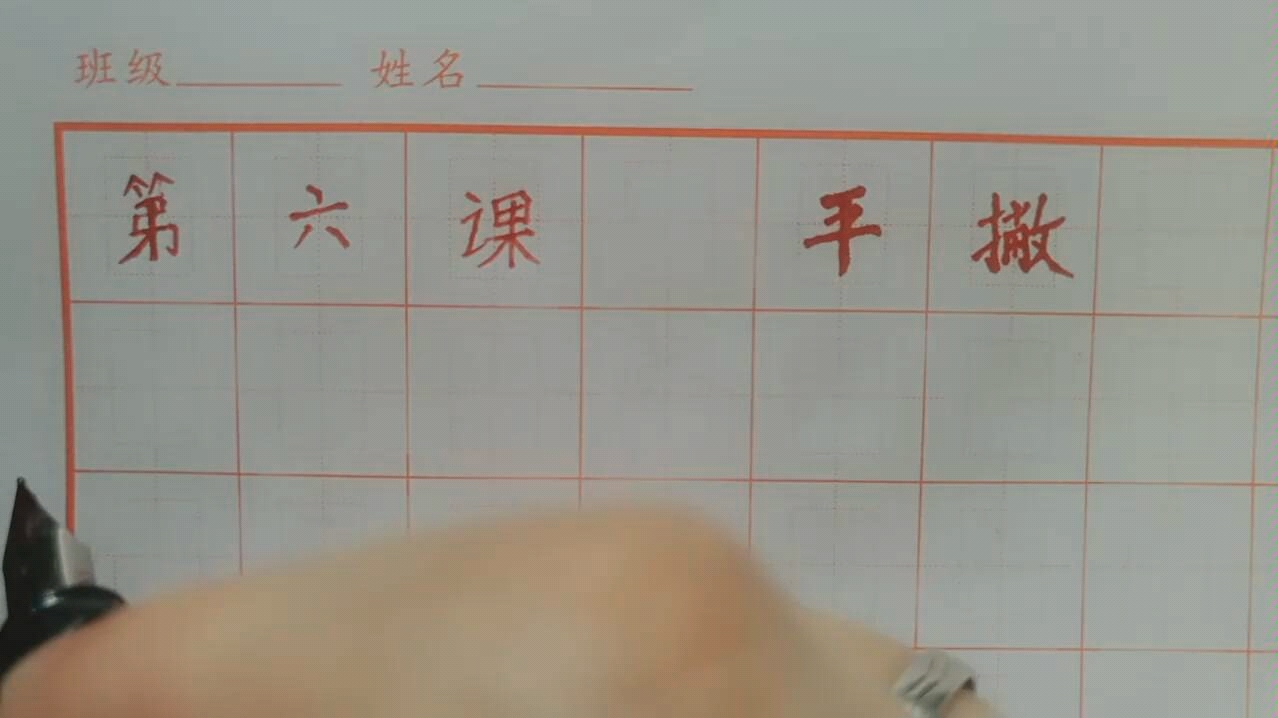 班级 姓名
第六课 平撇